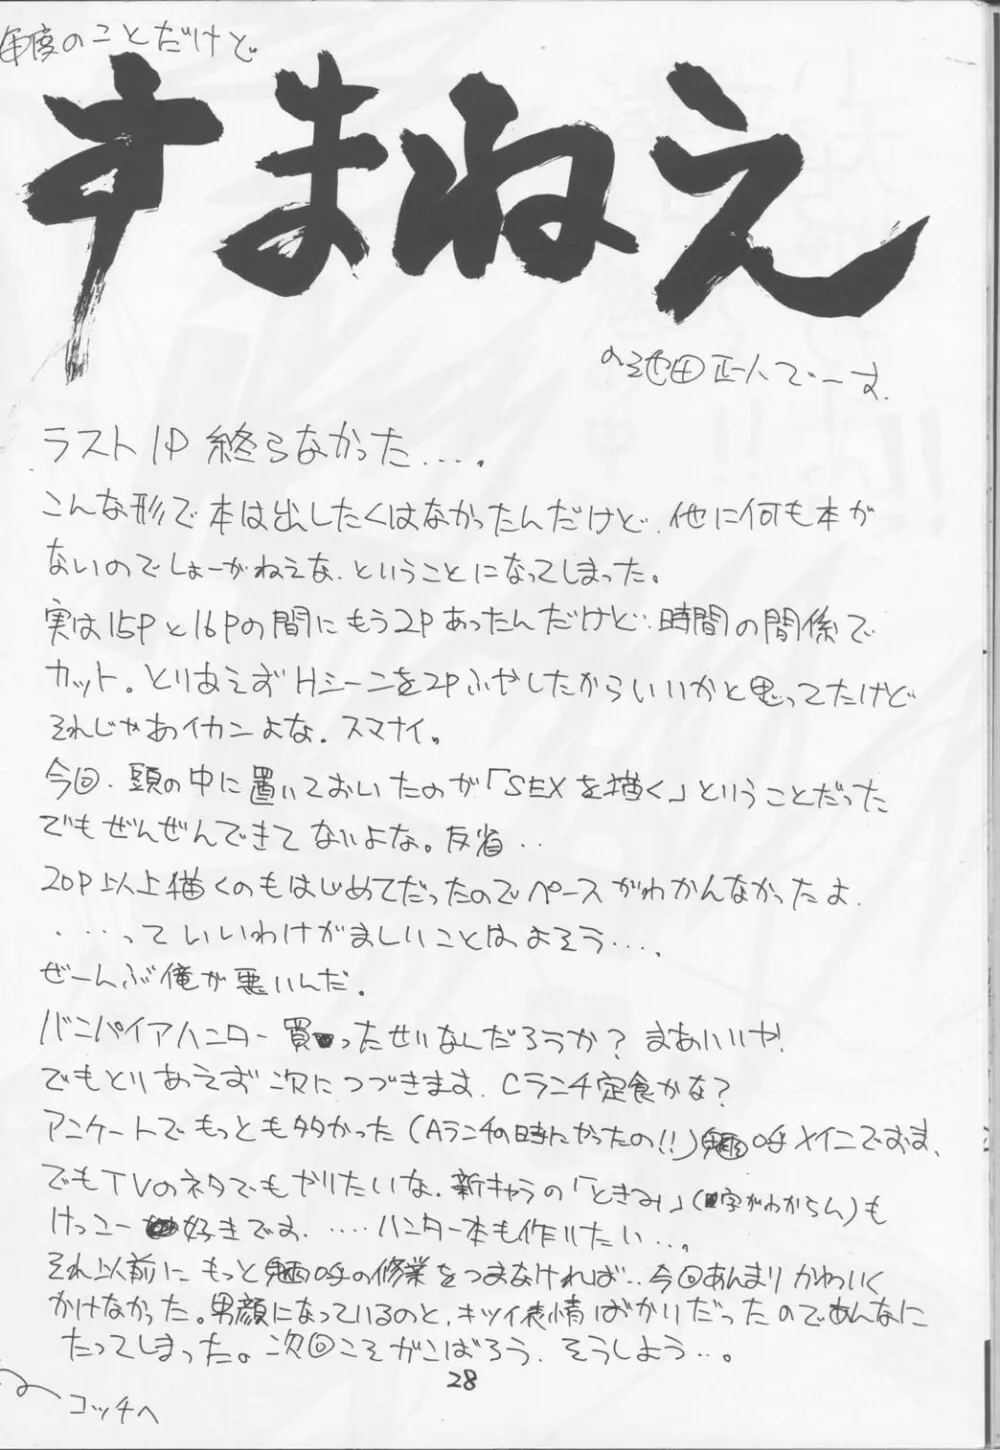 毎度のことだけど
すまねえ
の池田正人でーす.
ラスト1P 終らなかった....
こんな形で本は出したくはなかったんだけど、他に何も本が
ないのでしょーがねえな、ということになってしまった。
実は15Pと16Pの間にもう2Pあったんだけど、時間の関係で
カット。とりあえずHシーンを2Pふやしたからいいかと思ってたけど
それじゃあイカンよな. スマナイ。
今回、頭の中に置いておいたのが「SEXを描く」ということだった
でもぜんぜんできてないよな。反省..
20P以上描くのもはじめてだったのでペースがわかんなかったよ.
....っていいわけがましいことはよそう....
ぜーんぶ俺が悪いんだ.
バンパイアハンター買ったせいなんだろうか? まあいいや!
でもとりあえず次につづきます. Cランチ定食かな?
アンケートでもっとも多かった(Aランチの時にやったの!!)魎呼メインでおます、
でもTVのネタでもやりたいな. 新キャラの「ときみ」(字がわからん)も
けっこー好きです. ....ハンター本も作りたい...
それ以前にもっと魎呼の修業をつまなければ.. 今回あんまりかわいく
かけなかった。男顔になっているのと、キツイ表情ばかりだったのであんなに
たってしまった。次回こそがんばろう. そうしよう..。
28
コッチへ